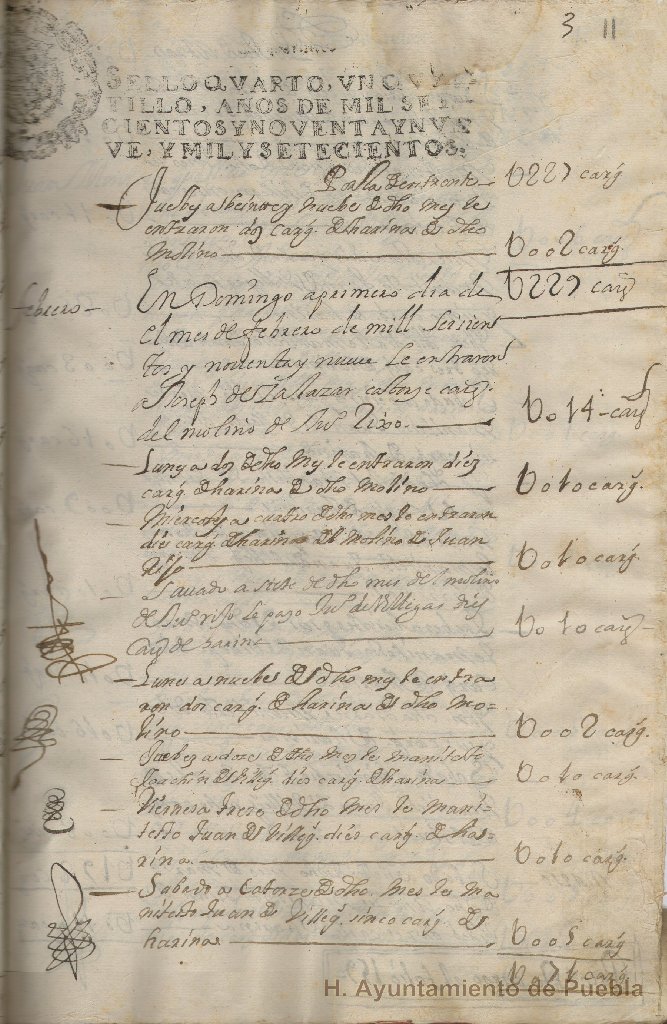 3 11
SELLO QVARTO, VN QVAR-
TILLO, AÑOS DE MIL SEIS-
CIENTOS Y NOVENTA Y NVE-
VE, Y MIL Y SETECIENTOS.
227 carg
Juebes a beinte y nuebe de dho mes se
entraron dos carg. de harina de dho
Molino 002 carg.
229 carg
febrero
En Domingo a primero dia de
el mes de febrero de mill seisien
tos y noventa y nueve le entraron
a Joseph de Salazar catorze carg.
del molino de Juº Rixo. 014 carg
Lunes a dos de dho mes le entraron diez
carg de harina de dho Molino 010 carg.
Miercoles a cuatro de dho mes le entraron
dies carg de harina del Molino de Juan
Risso 010 carg.
Savado a siete de dho mes del molino
de Juº riso le pago Juº de Villegas dies
carg de harina 010 carg
Lunes a nuebe de dho mes le entra
ron dos carg. de harina de dho Mo-
lino 002 carg.
Juebes a doce de dho mes le manifesto
Joachin de Villeg. dies carg. de harina 010 carg.
Viernes a trese de dho mes le mani-
festo Juan de Villeg. dies carg. de ha-
rina. 010 carg.
Sabado a Catorze de dho mes le ma
nifesto Juan de Villeg. sinco carg. de
harina 005 carg
071 carg
H. Ayuntamiento de Puebla